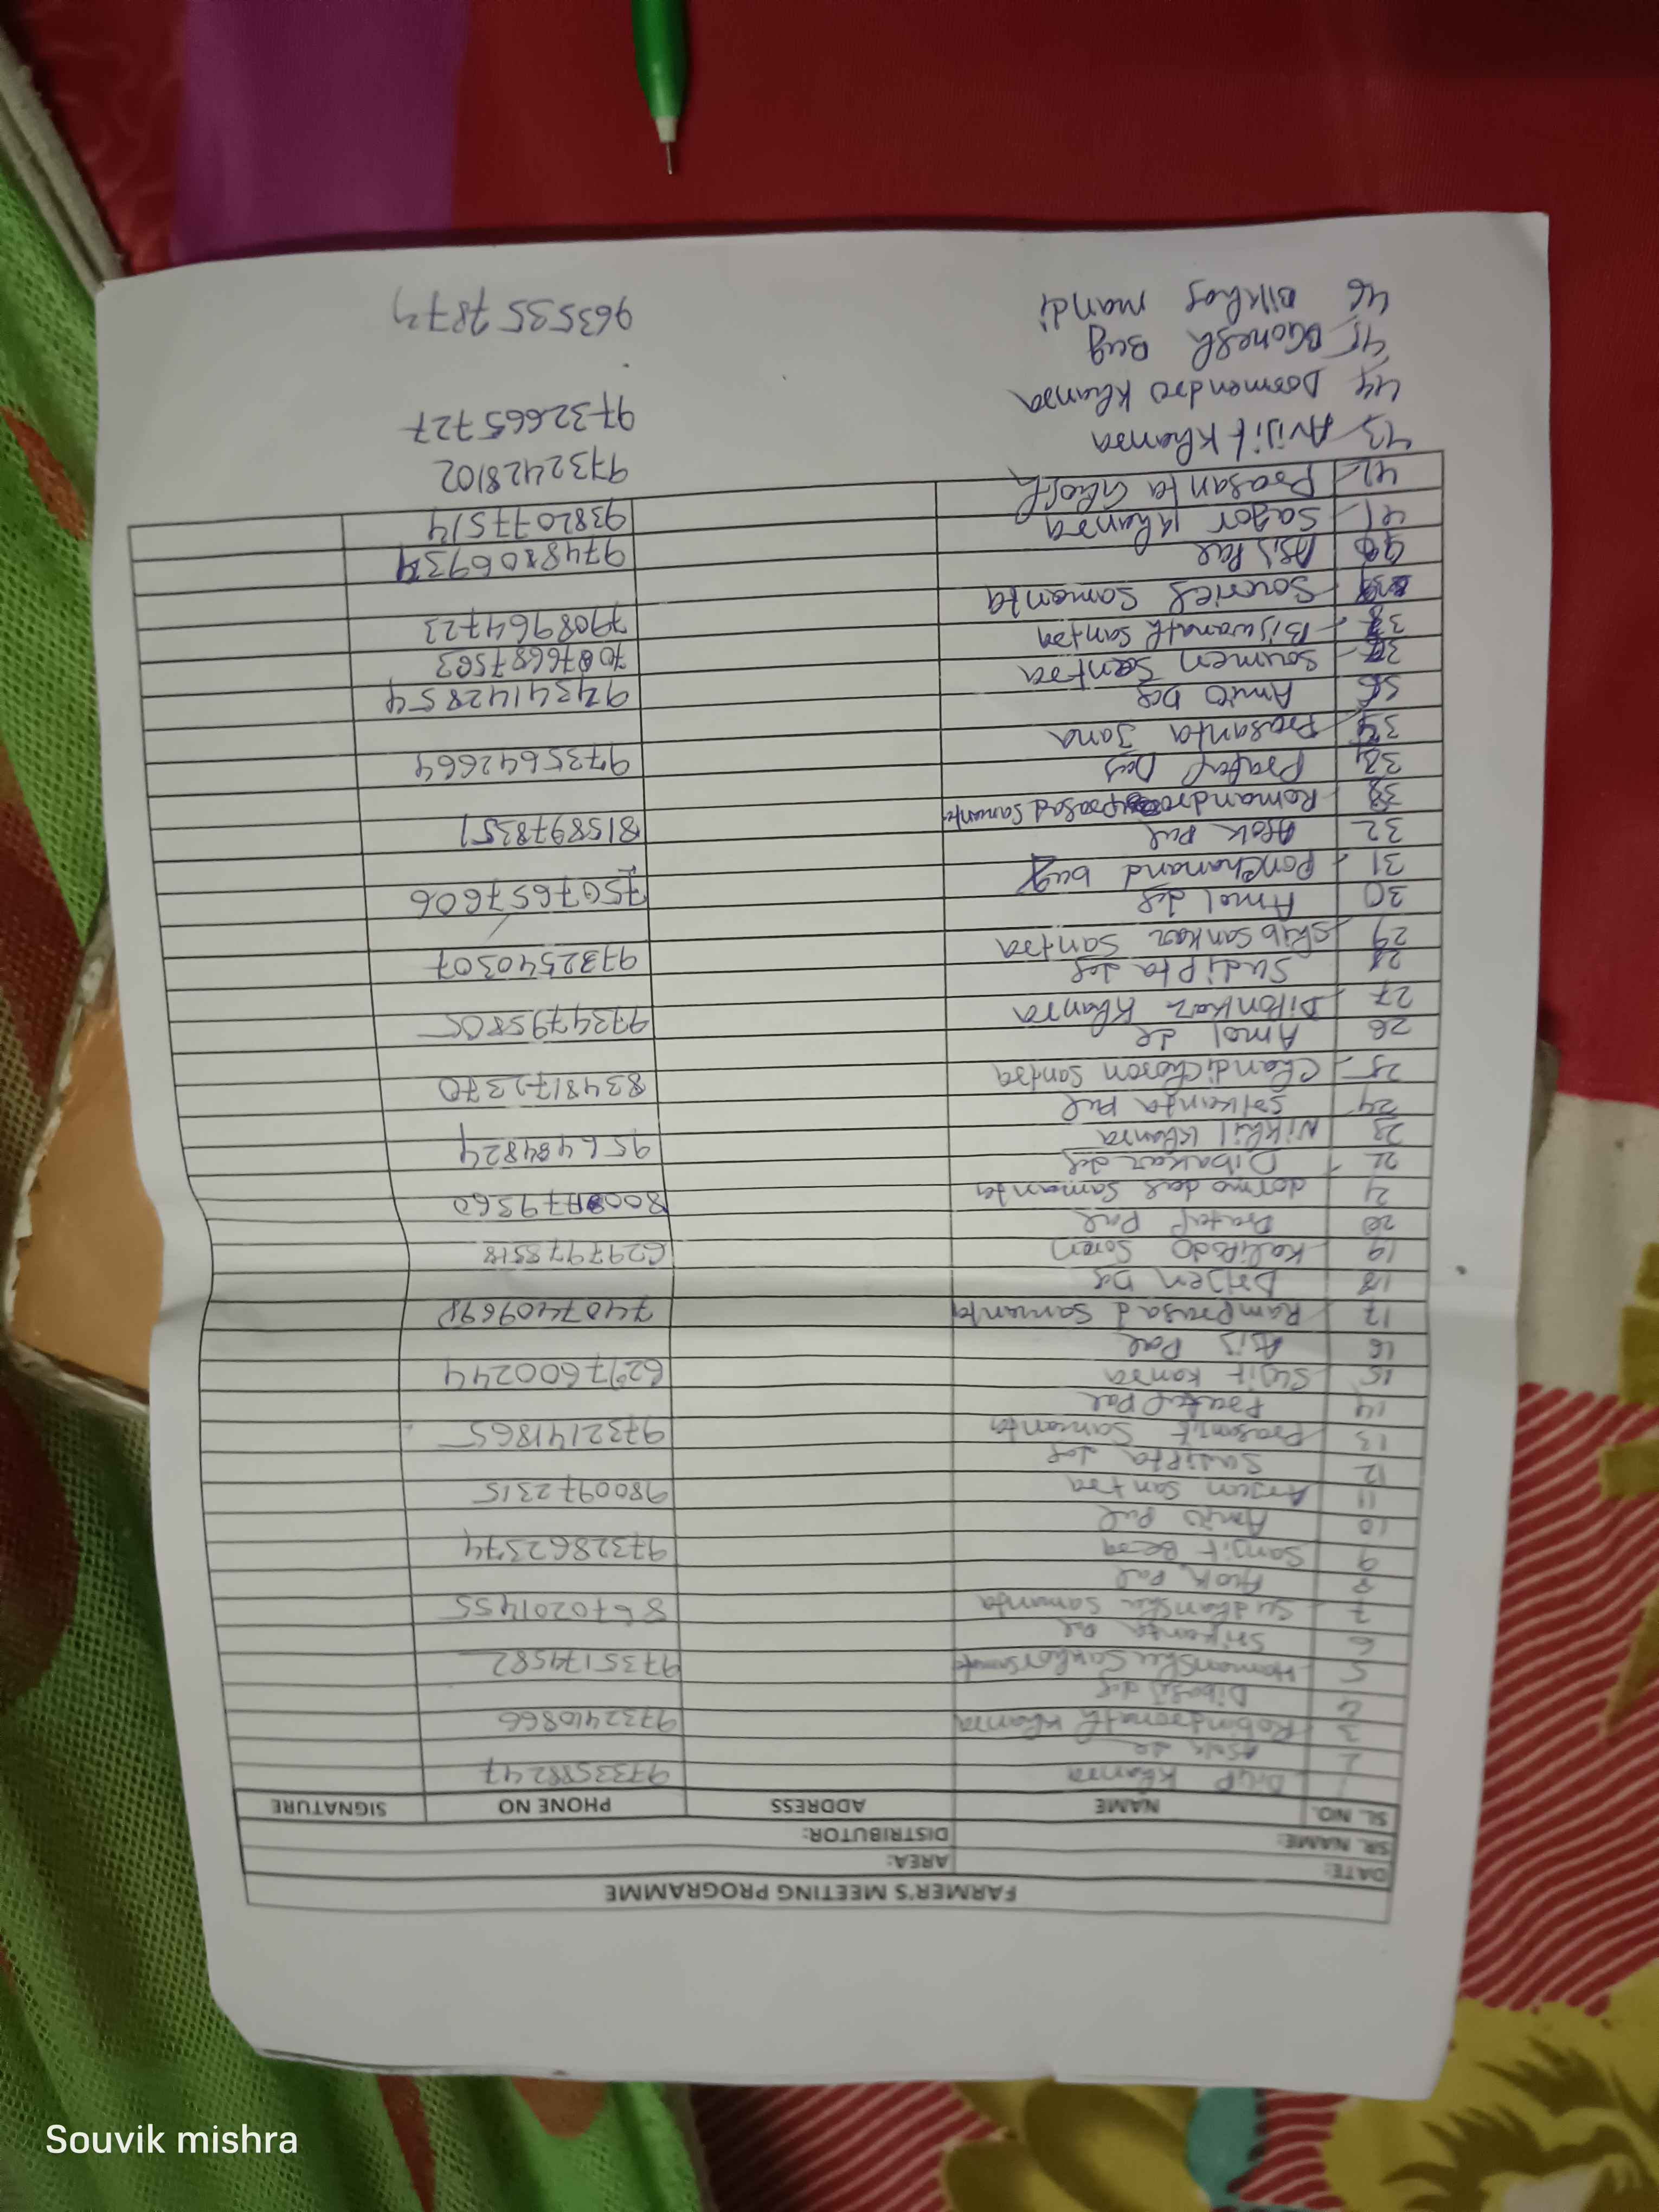 FARMER'S MEETING PROGRAMME
DATE: AREA:
SR. NAME: DISTRIBUTOR:
SL. NO. NAME ADDRESS PHONE NO SIGNATURE
1 Dilip Khanra 9733588247
2 Asok de
3 Robindronath Khanra 9732410866
4 Dibosh des
5 Homanshu Sankor Samonta 9735174582
6 Srikanta Pal
7 Sudhanshu Samanta 8670201455
8 Alok Pal
9 Sanjit Bera 9732862374
10 Amio Pal
11 Arjun Santra 9800972315
12 Sudipta des
13 Prasanjit Samanta 9732141865
14 Pratap Pal
15 Sujit Kanra 6297600244
16 Asis Pal
17 Ramprasad Samanta 7407409698
18 Drijen De
19 Kalipado Soren 6297978518
20 Pratap Pal
21 dormo das Samanta 8008779360
22 Dibakar des
23 Nikhil Khanra 956484824
24 Solkanta Pal
25 Chandichoron Santra 8348172370
26 Amol de
27 Diponkar Khanra 9734795805
28 Sudipta des
29 Shib Sankar Santra 9732540307
30 Amol des
31 Ponchanand bug 7507657606
32 Alok Pal
33 Romandro prosad Samanta 8158978351
34 Pratap Das
35 Prasanta Jana 9735642664
36 Amio De
37 Soumen Santra 9734142854
38 Biswanath Santra 7007668 7503
39 Souvick Samonta 7908964723
40 Asis Pal
41 Sagor Khanra 9748806934
42 Prasanta Ghosh 9382077514
43 Avijit Khanra 9732428102
44 Dormendro Khanra 9732665727
45 Gonesh Bug
46 Bikhas mandi 9635357873
Souvik mishra